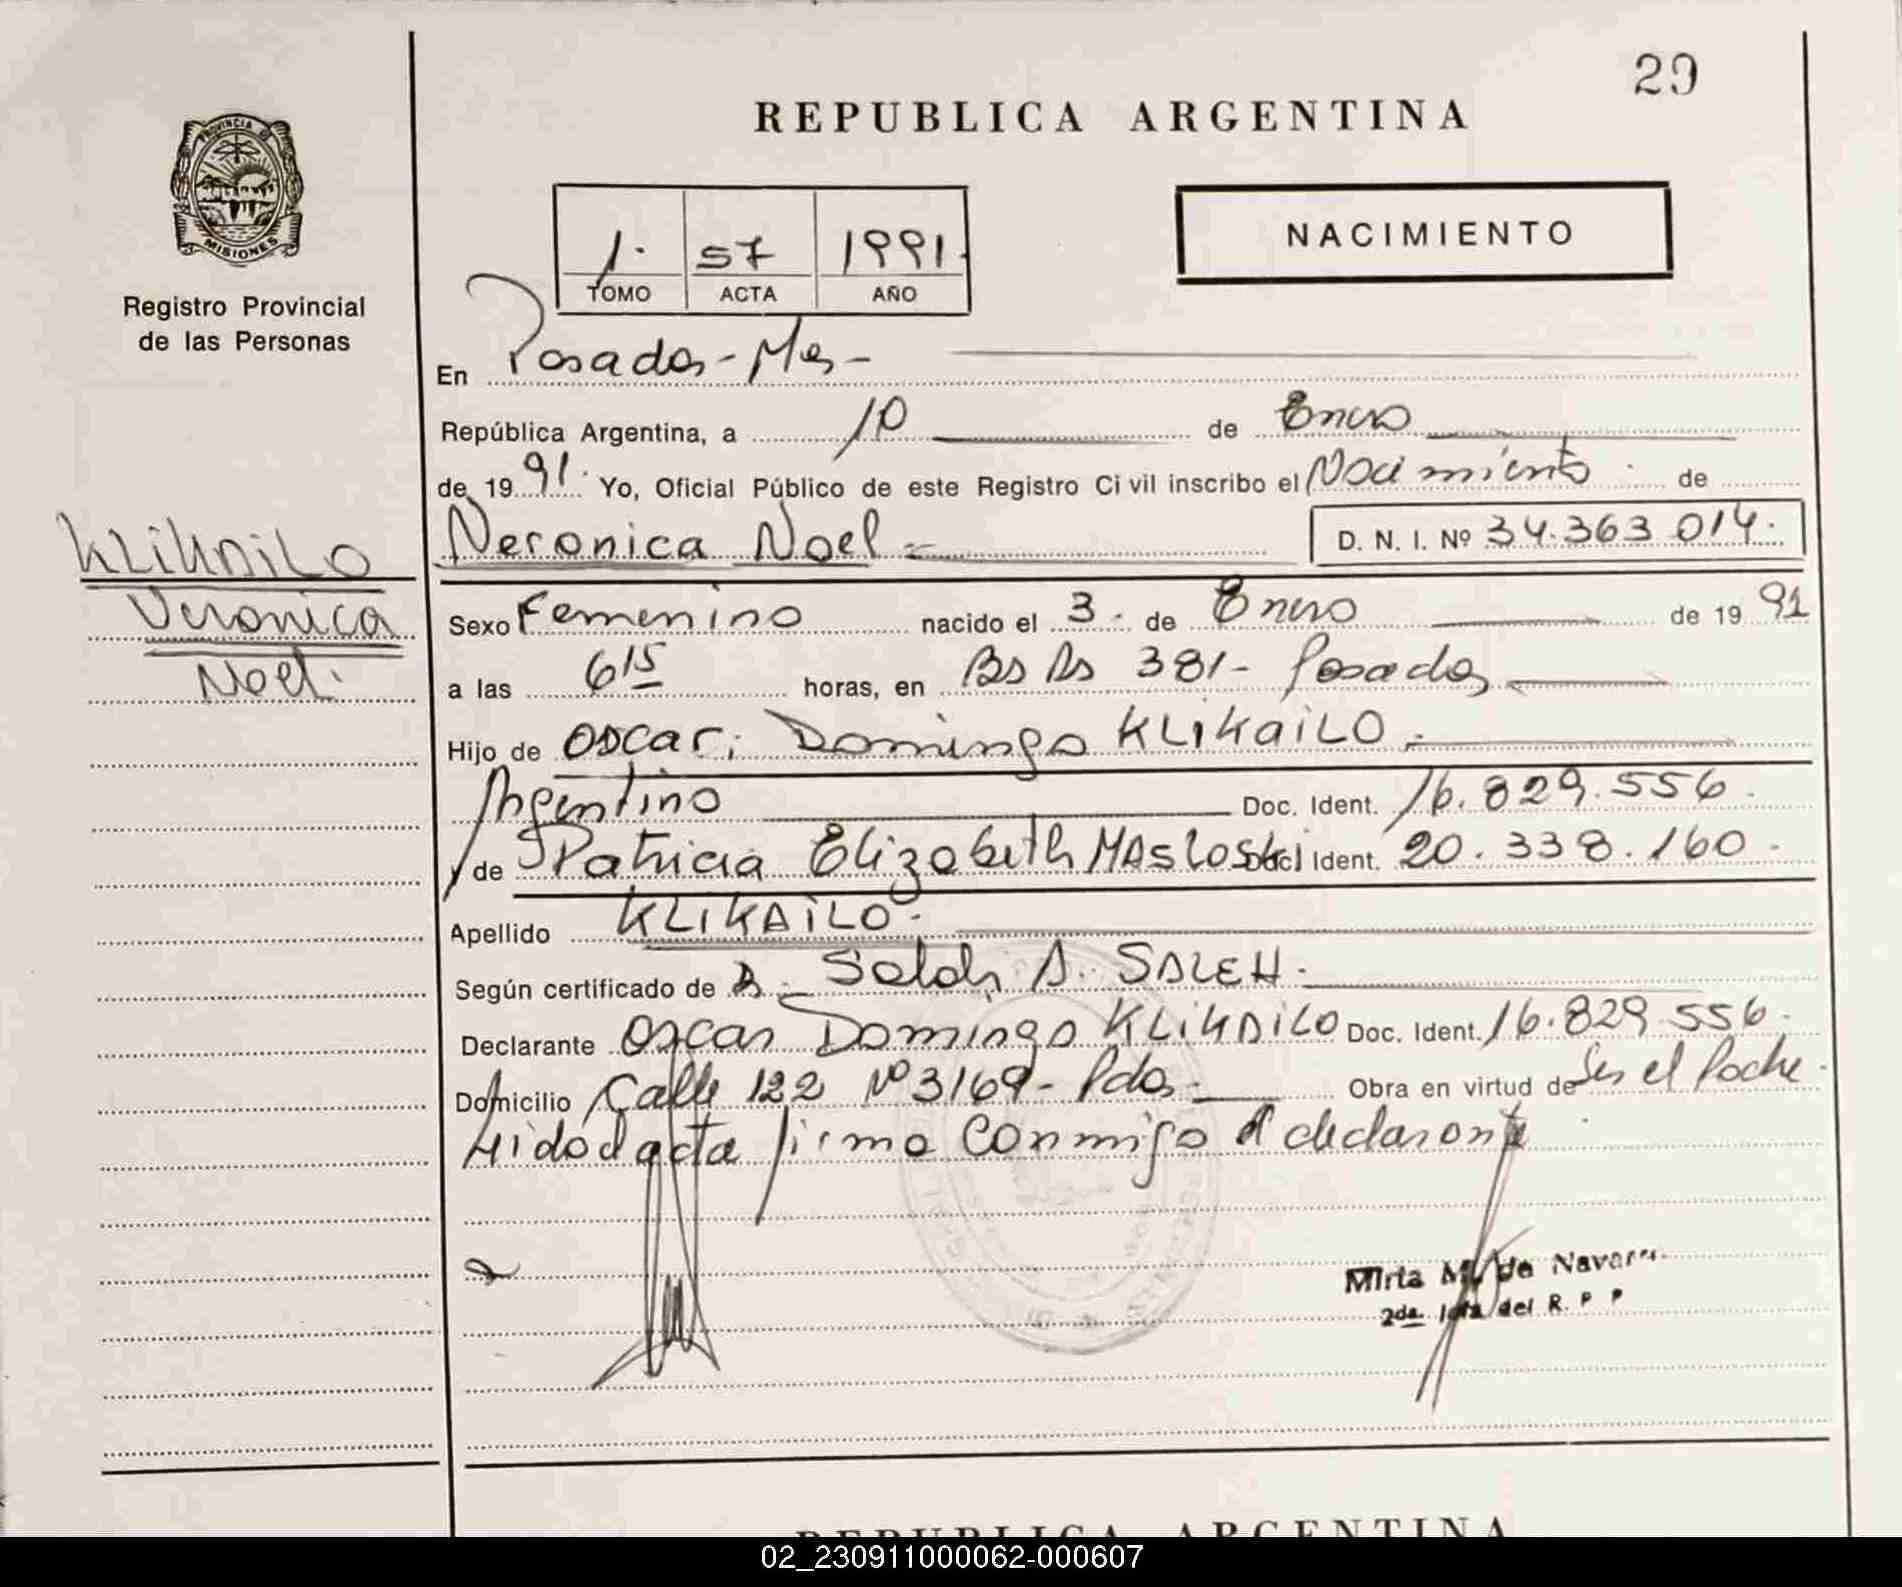 29
REPUBLICA ARGENTINA
PROVINCIA D
MISIONES
Registro Provincial
de las Personas
1. 57 1991.
TOMO ACTA AÑO
NACIMIENTO
En Posadas - Mes -
República Argentina, a 10 de Enero
de 19 91. Yo, Oficial Público de este Registro Civil inscribo el Nacimiento de
Veronica Noel = D. N. I. Nº 34.363 014.
KLIKAILO
Veronica
Noel.
Sexo Femenino nacido el 3. de Enero de 19 91
a las 6 15 horas, en Bs As 381 - Posadas
Hijo de Oscar; Domingo KLIKAILO.
Argentino Doc. Ident. 16.829.556.
y de Patricia Elizabeth MASLOSKI Doc. Ident. 20.338.160.
Apellido KLIKAILO.
Según certificado de A. SALEH.
Declarante Oscar Domingo KLIKAILO Doc. Ident. 16.829.556.
Domicilio Calle 122 Nº 3169 - Pdas - Obra en virtud de Ser el Padre.
Leido el acta firma Conmigo el declarante
Mirta M. de Navarr
2da. Jefa del R. P P
REPUBLICA ARGENTINA
02_230911000062-000607